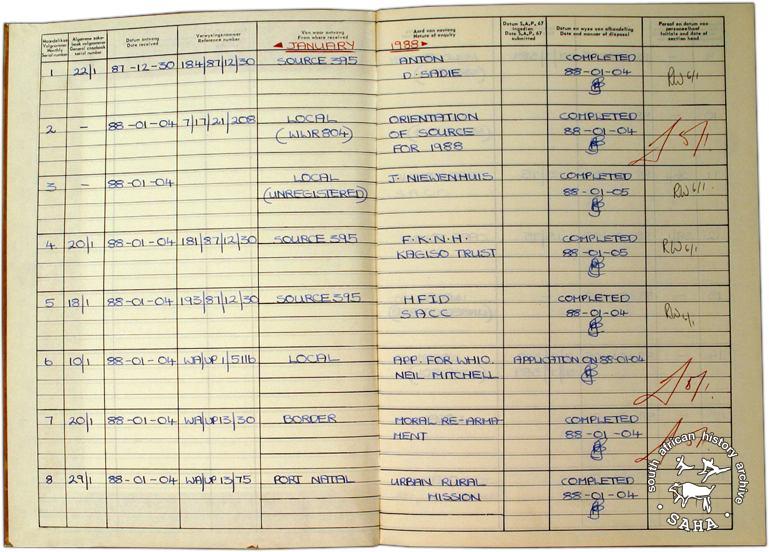 Maandelikse Volgnommer Monthly Serial number
Algemene sakeboek volgnommer General casebook serial number
Datum ontvang Date received
Verwysingsnommer Reference number
Van waar ontvang From where received
Aard van navraag Nature of enquiry
Datum S.A.P. 67 ingedien Date S.A.P. 67 submitted
Datum en wyse van afhandeling Date and manner of disposal
Paraaf en datum van personeelhoof Initials and date of section head
JANUARY 1988
1 22/1 87-12-30 184/87/12/30 SOURCE 395 ANTON COMPLETED
D. SADIE 88-01-04 RW 6/1
2 — 88-01-04 7/17/21/208 LOCAL ORIENTATION COMPLETED
(WWR804) OF SOURCE 88-01-04
FOR 1988
3 — 88-01-04 LOCAL J. NIEWENHUIS COMPLETED
(UNREGISTERED) 88-01-05 RW 6/1
4 20/1 88-01-04 181/87/12/30 SOURCE 395 F.K.N.H. COMPLETED
KAGISO TRUST 88-01-05 RW 6/1
5 18/1 88-01-04 193/87/12/30 SOURCE 395 HFID COMPLETED
SACC 88-01-04 RW 6/1
6 10/1 88-01-04 WA/UP/1/5116 LOCAL APP. FOR WHIO. APPLICATION ON 88-01-04
NEIL MITCHELL
7 20/1 88-01-04 WA/UP/13/30 BORDER MORAL RE-ARMA- COMPLETED
MENT 88-01-04
8 29/1 88-01-04 WA/UP/13/75 PORT NATAL URBAN RURAL COMPLETED
MISSION 88-01-04
south african history archive
• SAHA •